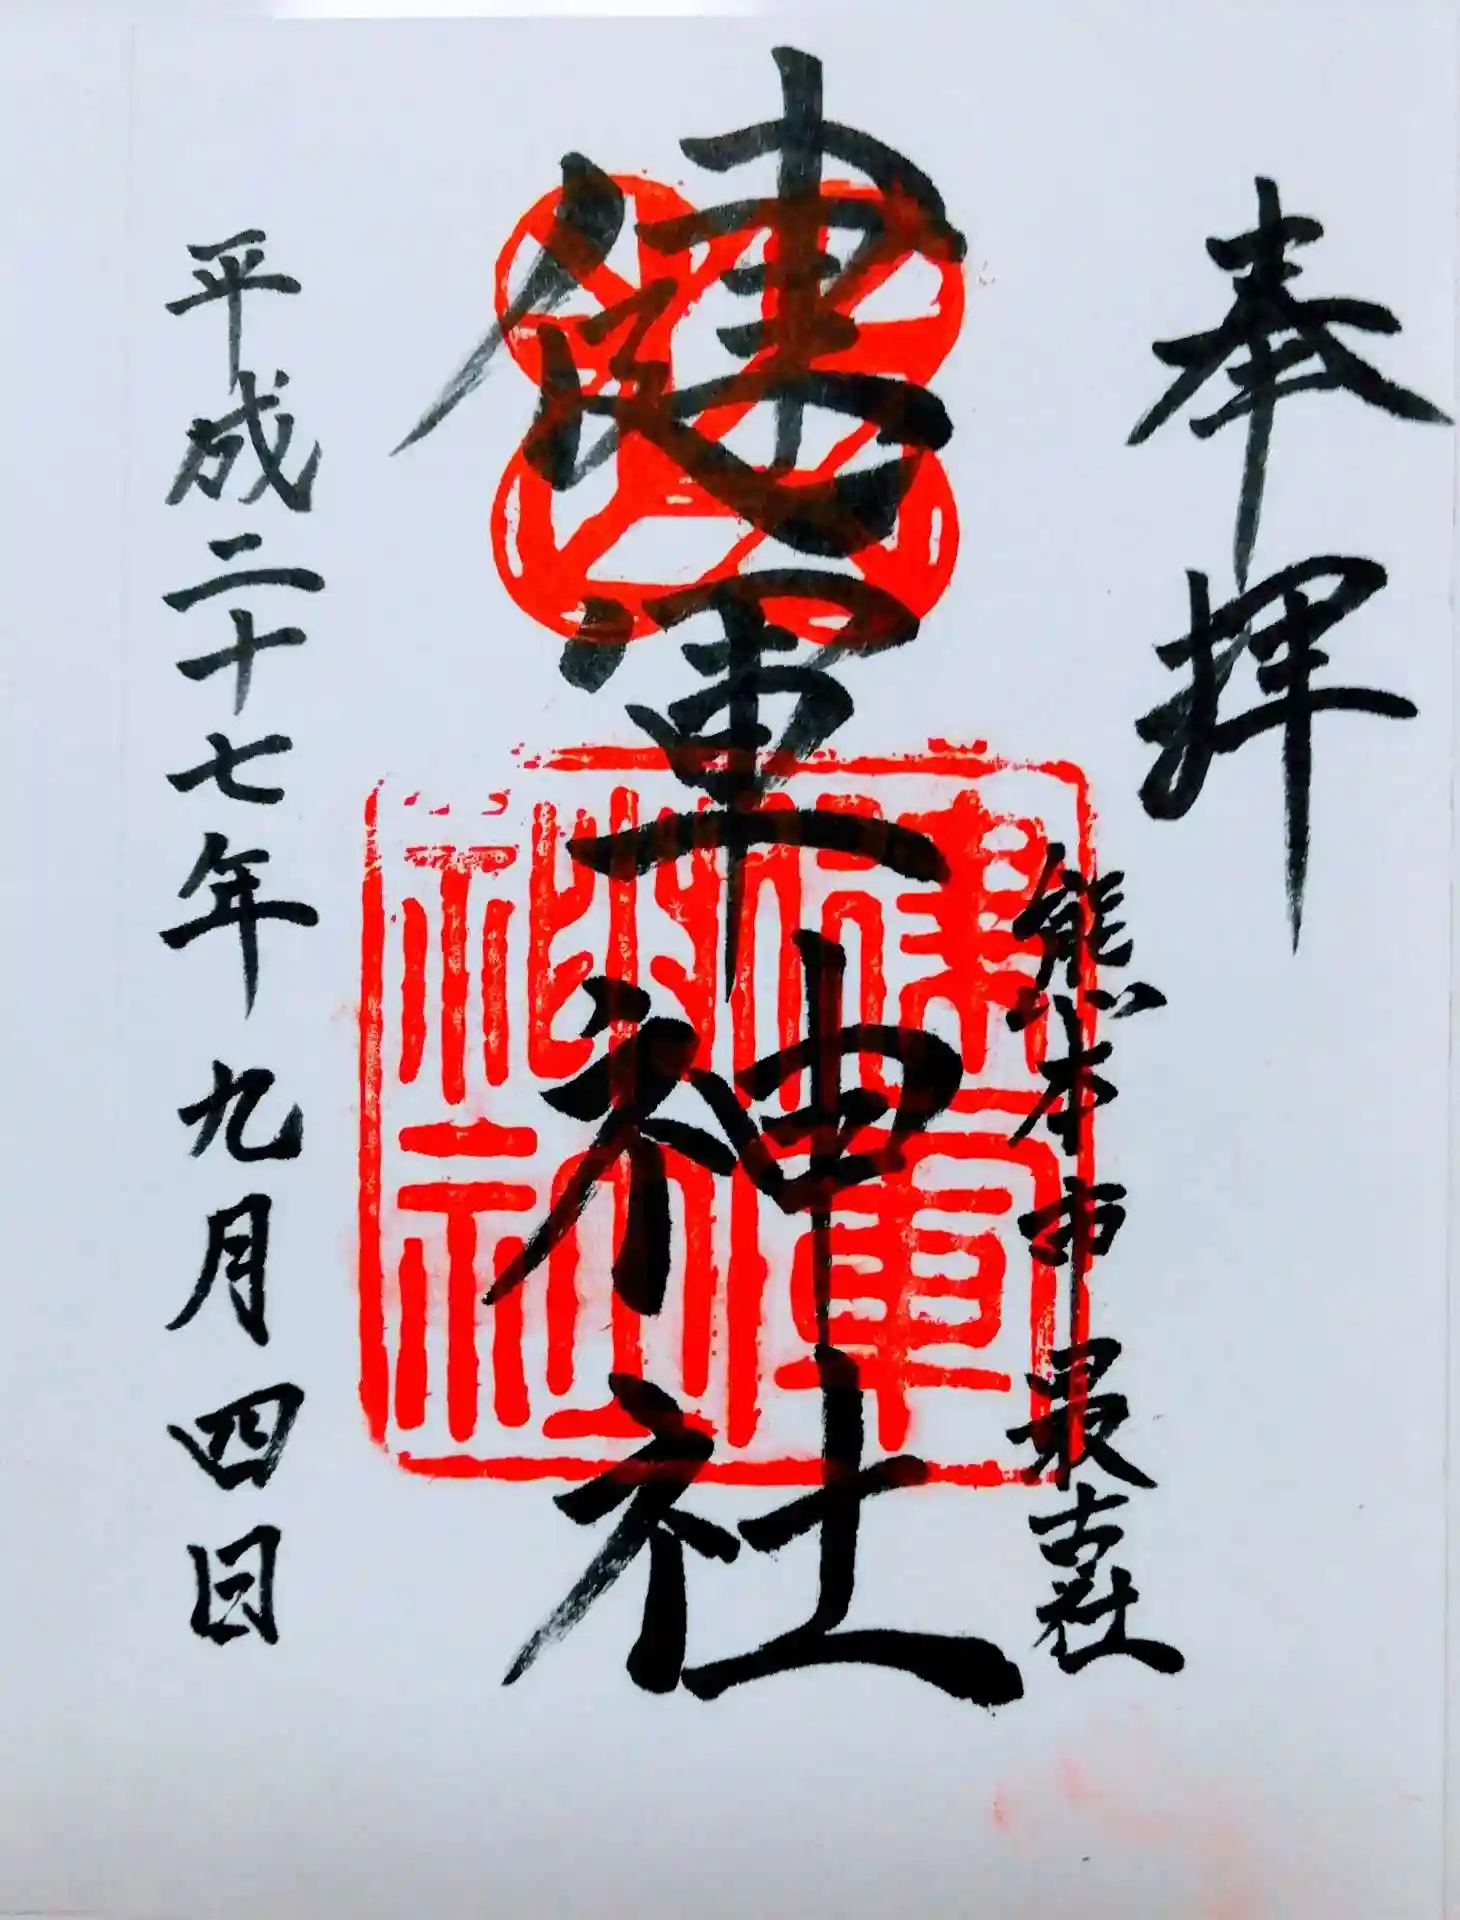 奉拝
熊本市最古社
健軍神社
健軍神社
平成二十七年九月四日